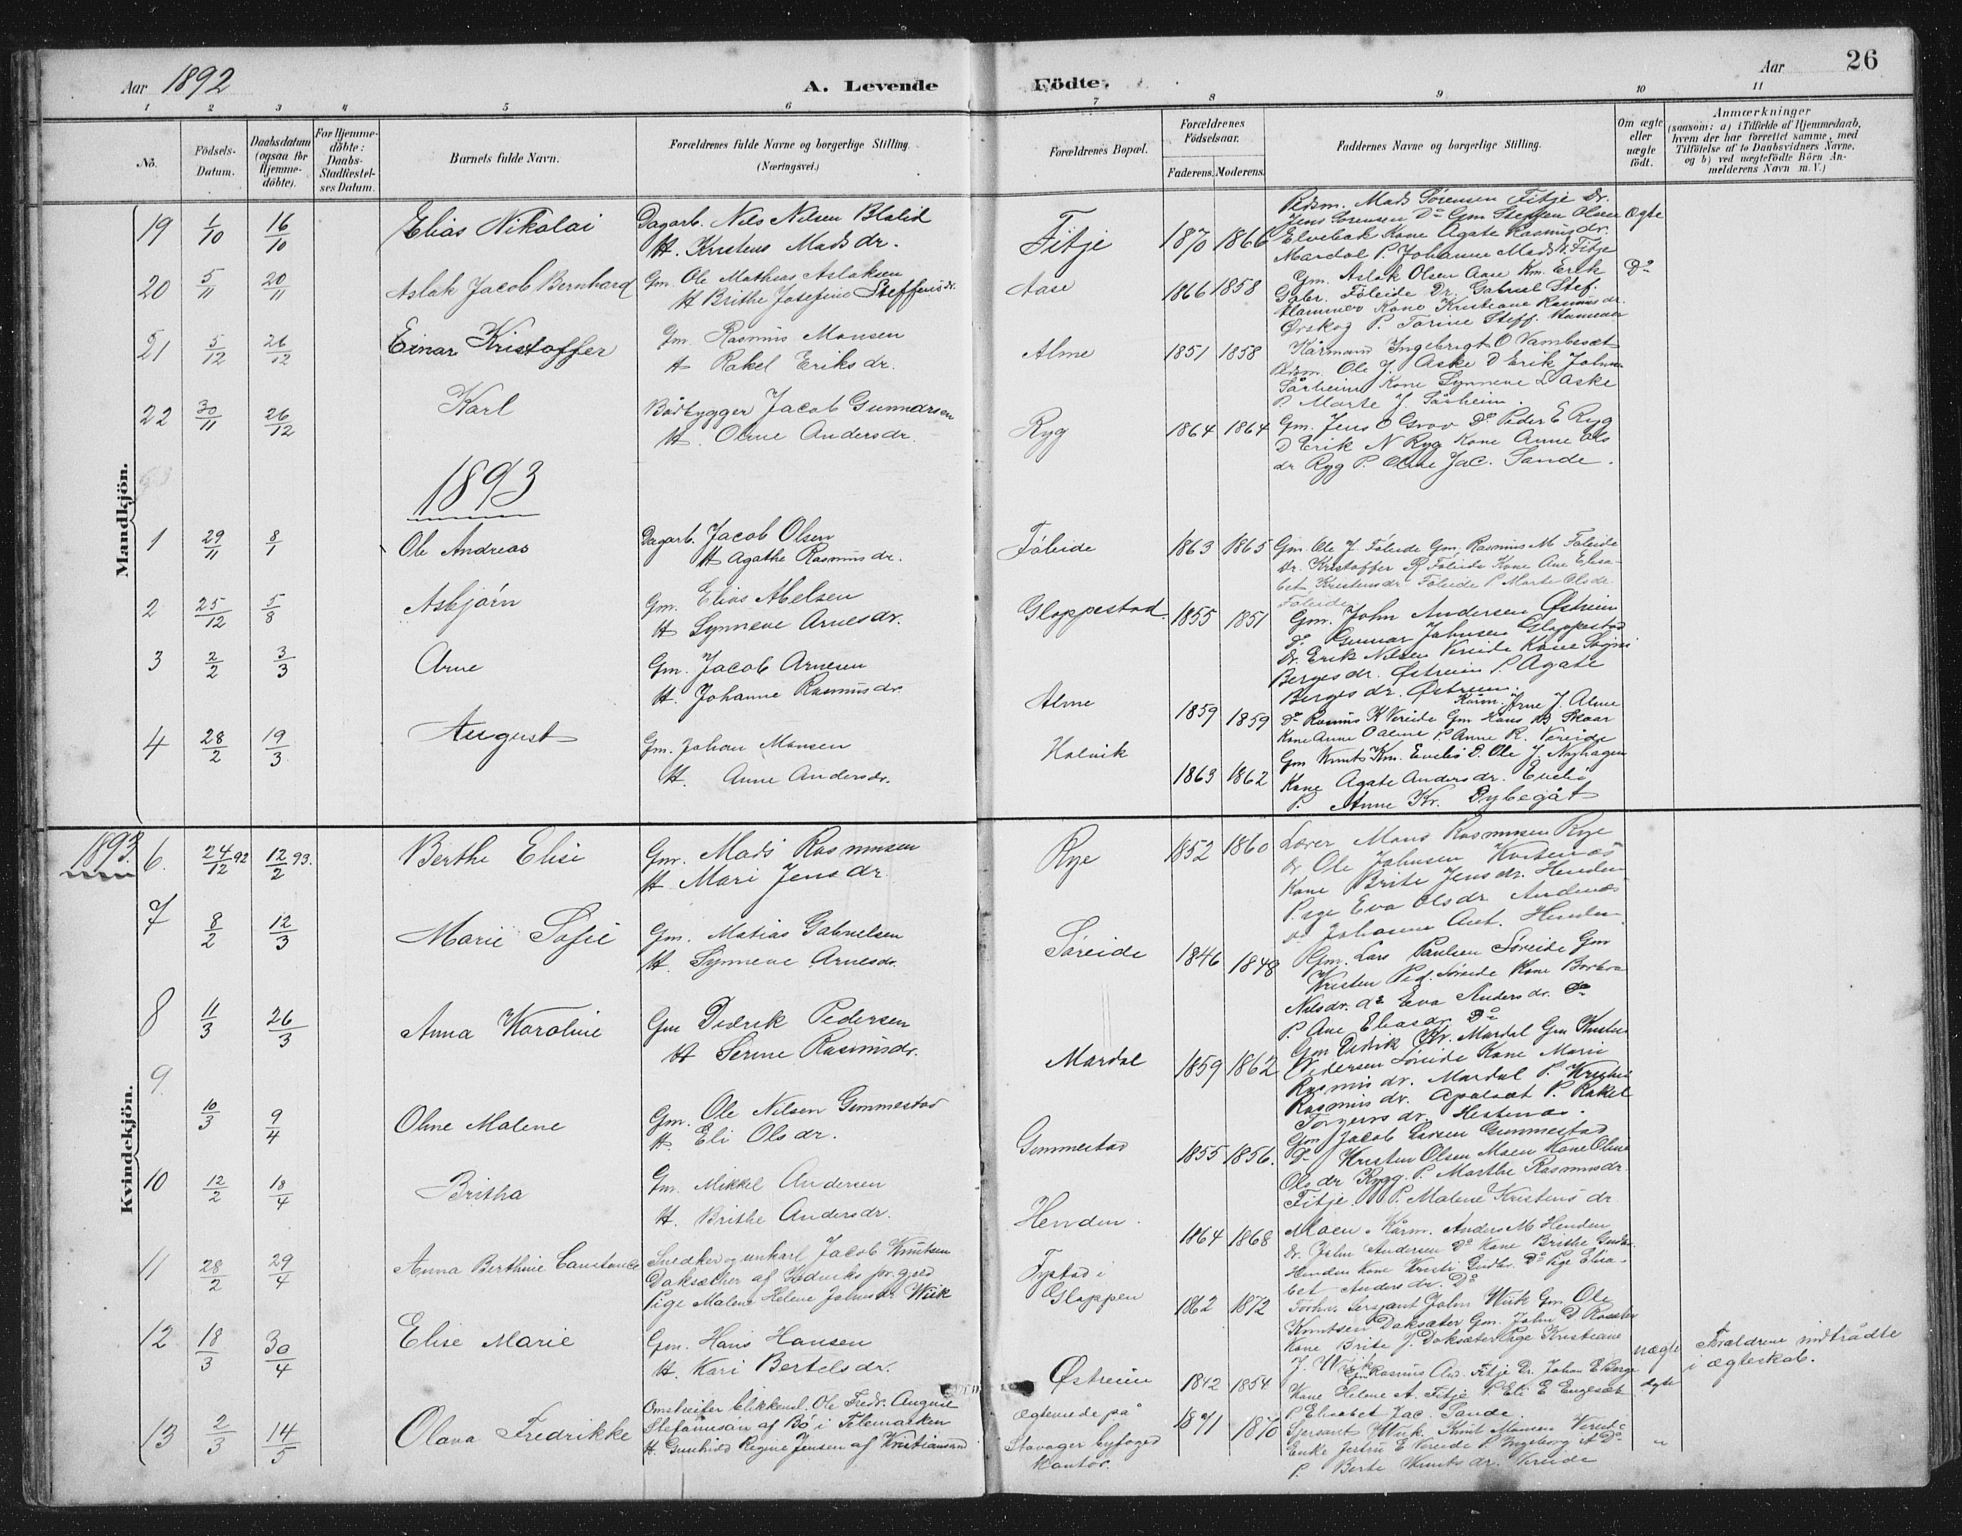 Aar 1892 A. Levende Födte. Aar 26
1 2 3 4 5 6 7 8 9 10 11
No.
Födsels-
Datum.
Daabsdatum
(ogsaa for
Hjemme-
döbte).
For Hjemme-
döbte:
Daabs-
Stadfæstel-
ses Datum.
Barnets fulde Navn.
Forældrenes fulde Navne og borgerlige Stilling.
(Næringsvei.)
Forældrenes Bopæl.
Forældrenes
Födselsaar.
Faderens. Moderens.
Faddernes Navne og borgerlige Stilling.
Om ægte
eller
uægte
födt.
Anmærkninger
(saasom: a) i Tilfælde af Hjemmedaab,
hvem der har forrettet samme, med
Tilföielse af to Daabsvidners Navne,
og b) ved uægtefödte Börn An-
melderens Navn m. V.)
Mandkjön.
19 1/10 16/10 Elias Nikolai
Dagarb. Nils Nilsen
H. Kristens Madsdr.
Fitje 1870 1866
Mads Sørensen Fitje Dr.
Jens Sørensen Do Gm Steffen Olsen
Elvebak Kone Agate Rasmusdr.
Mardal P. Johanne Mads Fitje
Ægte
20 5/11 20/11 Aslak Jacob Bernhard
Gm. Ole Mathias Aslaksen
H Brithe Josefine Steffensdr.
Aase 1866 1858
Gm. Aslak Olsen Aase Km. Erik
Gabr. Føleide Dr. Gabriel Stef.
Kone Kristiane Rasmusdr.
Ørskog P. Torine Steff.
Do
21 5/12 26/12 Einar Kristoffer
Gm. Rasmus Monsen
H Rakel Eriksdr.
Alme 1851 1858
Kårmand Ingebrigt O Vambeset
Ole J. Aske D Erik Johns
Sårheim Kone Synneve Aske
P. Marte J Sårheim.
22 30/11 26/12 Karl
Bådbygger Jacob Gunnarsen
H. Oline Andersdr.
Ryg 1864 1864
Gm. Jens O Grov Do Peder E Ryg
D Erik N Ryg Kone Anne Ols
dr Ryg P. Oline Jac. Sande.
1893
1 29/11 8/1 Ole Andreas
Dagarb. Jacob Olsen
H Agathe Rasmusdr.
Føleide 1863 1865
Gm. Ole J. Føleide Gm. Rasmus M Føleide
Dr. Kristoffer R Føleide Kone Ane Elisa-
bet Kristensdr Føleide P Marte Olsdr
Føleide
2 25/12 5/8 Asbjörn
Gm. Elias Abelsen
H Synneve Arnesdr.
Gloppestad 1855 1851
Gm. John Andersen Østrein
Do Gunnar Johnsen Gloppestad
Dr. Erik Nilsen Vereide Kone Sogni
Bergesdr. Østrein P. Agate
Bergesdr. Østrein.
3 2/2 3/3 Arne
Gm. Jacob Arnesen
H. Johanne Rasmusdr.
Alme 1859 1859
Kårm. Arne J. Alme
Do Rasmus K Vereide Gm Hans B Skaar
Kone Anne O Alme P Anne R. Vereide
4 28/2 19/3 August
Gm. Johan Monsen
H. Anne Andersdr.
Holvik 1863 1862
Gm Knut Km. Evebø D. Ole J Nyhagen
Kone Agate Andersdr. Evebø
P. Anne Kr. Dybegåt
Kvindekjön.
1893. 6. 24/12 92 12/2 93. Berthe Elise
Gm. Mads Rasmusen
H. Mari Jensdr
Rye 1852 1860
Lærer Mons Rasmusen Rye
Dr Ole Johnsen
Kone Brite Jensdr. Henden
Pige Eva Olsdr Andenæs
Do Johanne Ant. Henden
7 8/2 12/3 Marie Sofie
Gm. Matias Gabrielsen
H. Synneve Arnesdr.
Søreide 1846 1848
Gm. Lars Paulsen Søreide Gm
Kristen Ped. Søreide Kone Barbra
Nilsdr. Do Eva Andersdr. Do
P. Ane Eliasdr Do
8 11/3 26/3 Anna Karoline
Gm Didrik Pedersen
H Serine Rasmusdr.
Mardal 1859 1862
Gm Didrik Kr. Mardal Gm Kristen
Pedersen Søreide Kone Marie
Rasmusdr. Mardal P.
Rasmusdr. Apalset P. Rakel
Torgersdr. Hestenæs.
9. 10/3 9/4 Oline Malene
Gm. Ole Nilsen Gimmestad
H Eli Olsdr.
Gimmestad 1855 1856.
Gm. Jacob Larsen Gimmestad
Do Kristen Olsen Moen Kone Oline
Olsdr Rygg. P. Marthe Rasmusdr
Fitje. P. Malene Kristensdr
10 12/2 18/4 Britha
Gm. Mikkel Andersen
H. Brithe Andersdr.
Henden. 1864 1868
Moen. Kårm. Anders M Henden
Dr. John Andersen Do Kone Brithe
Henden Kone Kristi Do Pige Elisa-
bet Andersdr. Do
11 28/2 29/4 Anna Berthine Constance
Snedker og unkarl Jacob Knutsen
Doksæther af
Pige Malene Helene Johnsdr Wiik
Fystad i
Gloppen 1862 1872
Sersjant John Wiik Gm. Ole
Knutsen Doksæter Gm. John D
Kone Brite J. Doksæter Pige Kristiane
J. Wiik
uægte
Forældrene indtrådte
i ægteskab.
12 18/3 30/4 Elise Marie
Gm. Hans Hansen
H. Kari Bertelsdr.
Østrein 1842 1854
Gm Rasmus And. Fitje Dr. Johan E Berge
Kone Helene A. Fitje P Eli E Engeset
P Elisabet Jac. Sande.
ægte
13 2/3 14/5 Olava Fredrikke
Omstreifer blikkensl. Ole Fredr. August
Stefanussön af Bö i Telemarken
H Gunhild Regine Jensen af Kristiansund
Ægteviede på
Stavager byfoged
kontor. 1871 1870
Sjersant Wiik Knut Monsen Vereide
Enke Jertru E Vereide P Ingeborg A Do
P. Berte Knutsdr. Vereide
"